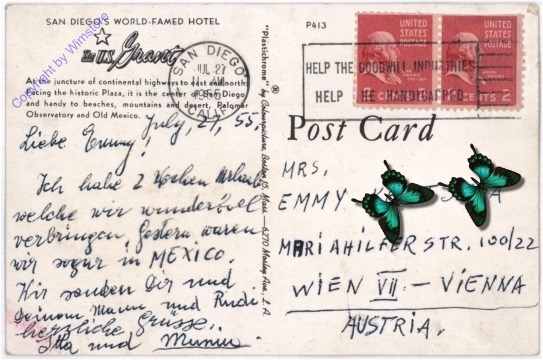 SAN DIEGO'S WORLD-FAMED HOTEL
The U.S. Grant
At the juncture of continental highways to east and north.
Facing the historic Plaza, it is the center of San Diego
and handy to beaches, mountains and desert, Palomar
Observatory and Old Mexico.
July, 27, 55.
Liebe Emmy!
Ich habe 2 Wochen Urlaub
welche wir wundervoll
verbringen. Gestern waren
wir sogar in MEXICO.
Wir senden Dir und
Deinem Mann und Rudi
herzliche Grüsse.
und
Copyright by Wimstore
"Plastichrome" ® by Colourpicture, Boston 15, Mass.
L. A.
P413
SAN DIEGO
JUL 27
AM
1955
CALIF.
HELP THE GOODWILL INDUSTRIES
HELP THE HANDICAPPED
UNITED
STATES
POSTAGE
UNITED
STATES
POSTAGE
CENTS 2
Post Card
MRS.
EMMY
MARIAHILFERSTR. 100/22
WIEN VII - VIENNA
AUSTRIA.